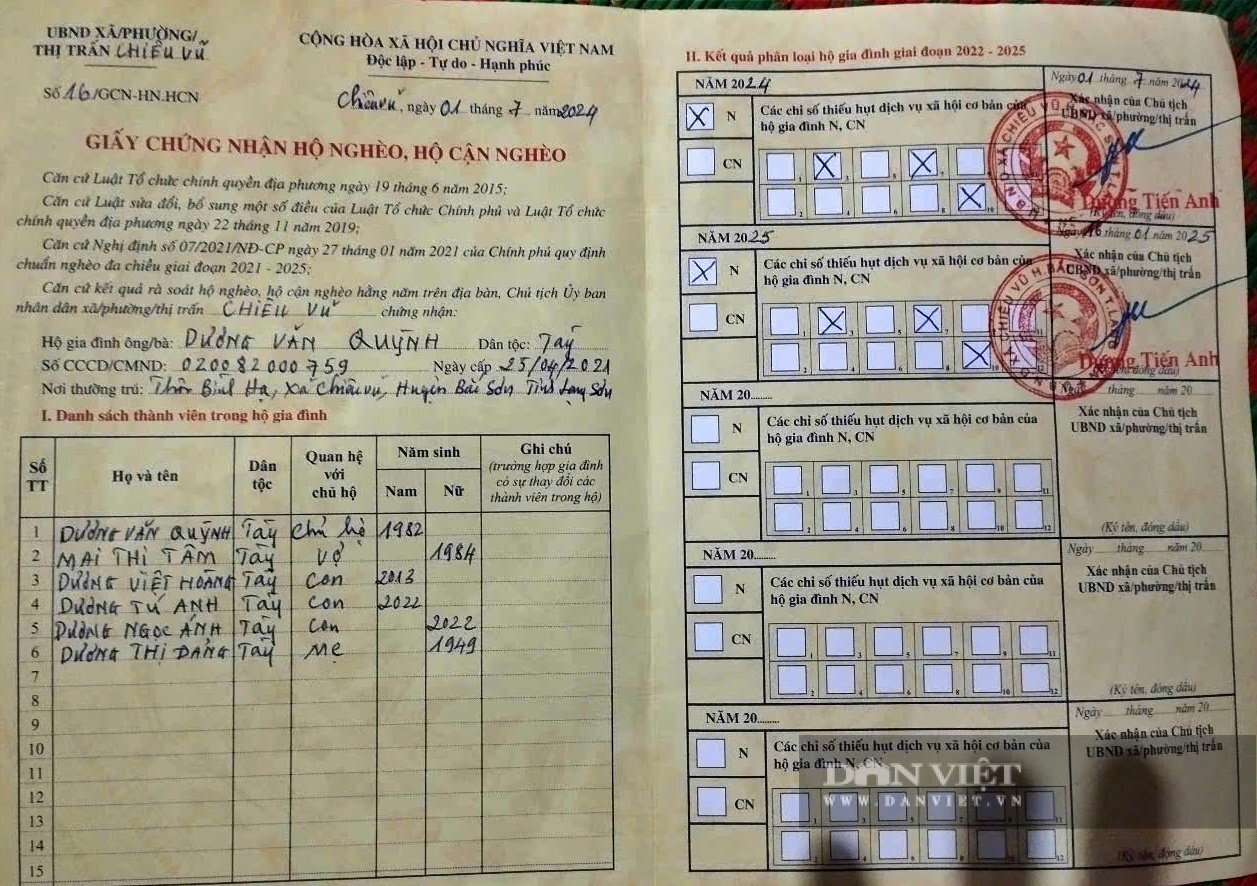 UBND XÃ/PHƯỜNG/
THỊ TRẤN CHIÊU VŨ
CỘNG HÒA XÃ HỘI CHỦ NGHĨA VIỆT NAM
Độc lập - Tự do - Hạnh phúc
Số 16/GCN-HN.HCN
Chiêu vũ, ngày 01 tháng 7 năm 2024
GIẤY CHỨNG NHẬN HỘ NGHÈO, HỘ CẬN NGHÈO
Căn cứ Luật Tổ chức chính quyền địa phương ngày 19 tháng 6 năm 2015;
Căn cứ Luật sửa đổi, bổ sung một số điều của Luật Tổ chức Chính phủ và Luật Tổ chức
chính quyền địa phương ngày 22 tháng 11 năm 2019;
Căn cứ Nghị định số 07/2021/NĐ-CP ngày 27 tháng 01 năm 2021 của Chính phủ quy định
chuẩn nghèo đa chiều giai đoạn 2021 - 2025;
Căn cứ kết quả rà soát hộ nghèo, hộ cận nghèo hằng năm trên địa bàn, Chủ tịch Ủy ban
nhân dân xã/phường/thị trấn CHIÊU VŨ chứng nhận:
Hộ gia đình ông/bà: DƯƠNG VĂN QUỲNH Dân tộc: Tày
Số CCCD/CMND: 020082000759 Ngày cấp 25/04/2021
Nơi thường trú: Thôn Bình Hạ, Xã Chiêu vũ, Huyện Bắc Sơn Tỉnh Lạng Sơn
I. Danh sách thành viên trong hộ gia đình
Số TT Họ và tên Dân tộc Quan hệ với chủ hộ Năm sinh Nam Nữ Ghi chú (trường hợp gia đình có sự thay đổi các thành viên trong hộ)
1 DƯƠNG VĂN QUỲNH Tày Chủ hộ 1982
2 MAI THỊ TÂM Tày Vợ 1984
3 DƯƠNG VIỆT HOÀNG Tày Con 2013
4 DƯƠNG TÚ ANH Tày Con 2022
5 DƯƠNG NGỌC ÁNH Tày Con 2022
6 DƯƠNG THỊ ĐẢNG Tày Mẹ 1949
7
8
9
10
11
12
13
14
15
II. Kết quả phân loại hộ gia đình giai đoạn 2022 - 2025
NĂM 2024
Ngày 01 tháng 7 năm 2024
X N Các chỉ số thiếu hụt dịch vụ xã hội cơ bản của
hộ gia đình N, CN
Xác nhận của Chủ tịch
UBND xã/phường/thị trấn
CN
1 X X
2 4 6 8 X 10
Dương Tiến Anh
(Ký tên, đóng dấu)
NĂM 2025
Ngày 16 tháng 01 năm 2025
X N Các chỉ số thiếu hụt dịch vụ xã hội cơ bản của
hộ gia đình N, CN
Xác nhận của Chủ tịch
UBND xã/phường/thị trấn
CN
1 X 5 X
2 4 6 8 X
Dương Tiến Anh
(Ký tên, đóng dấu)
NĂM 20........
Ngày tháng năm 20
N Các chỉ số thiếu hụt dịch vụ xã hội cơ bản của
hộ gia đình N, CN
Xác nhận của Chủ tịch
UBND xã/phường/thị trấn
CN
1 3 5 7 9 11
2 4 6 8 10 12
(Ký tên, đóng dấu)
NĂM 20........
Ngày tháng năm 20
N Các chỉ số thiếu hụt dịch vụ xã hội cơ bản của
hộ gia đình N, CN
Xác nhận của Chủ tịch
UBND xã/phường/thị trấn
CN
1 3 5 7 9 11
2 4 6 8 10 12
(Ký tên, đóng dấu)
NĂM 20........
Ngày tháng năm 20
N Các chỉ số thiếu hụt dịch vụ xã hội cơ bản của
hộ gia đình N, CN
Xác nhận của Chủ tịch
UBND xã/phường/thị trấn
CN
1 3 5 7 9 11
2 4 6 8 10 12
(Ký tên, đóng dấu)
DÂN VIỆT
WWW.DANVIET.VN